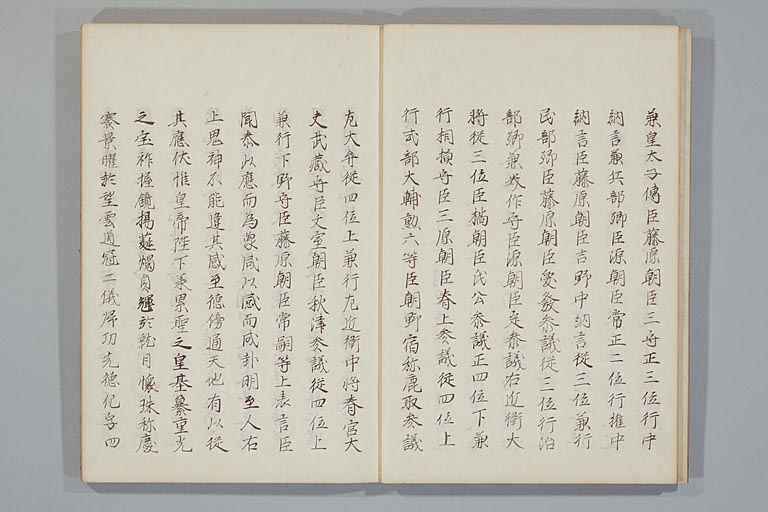 兼皇太子傅臣藤原朝臣三守正三位行中
納言兼兵部卿臣源朝臣常正三位行権中
納言臣藤原朝臣吉野中納言従三位兼行
民部卿臣藤原朝臣愛發参議従三位行治
部卿兼美作守臣源朝臣定参議右近衛大
将従三位臣橘朝臣氏公参議正四位下兼
行相模守臣三原朝臣春上参議従四位上
行式部大輔勲六等臣朝野宿祢鹿取参議
左大弁従四位上兼行左近衛中将春宮大
夫武蔵守臣文室朝臣秋津参議従四位上
兼行下野守臣藤原朝臣常嗣等上表言臣
聞泰以應而為彖咸以感而成卦明至人右
上思神不能違其感至德傍通天地有以従
其應伏惟皇帝陛下秉累聖之皇基纂重光
之宝祚握鏡揚蕤燭貞耀於乾月懐珠称慶
褰景曜於望雲道冠二儀帰功先德化孚四